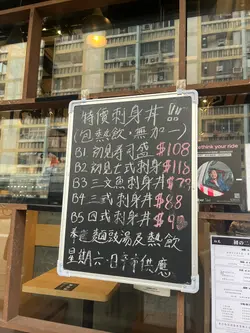 特價刺身丼!!!
(包熱飲,無加一)
B1 初見壽司盛 $108
B2 初見七式刺身 $118
B3 三文魚刺身丼 $79
B4 三式刺身丼 $88
B5 四式刺身丼
麵豉湯及熱飲
星期六、日 供應
think your ride